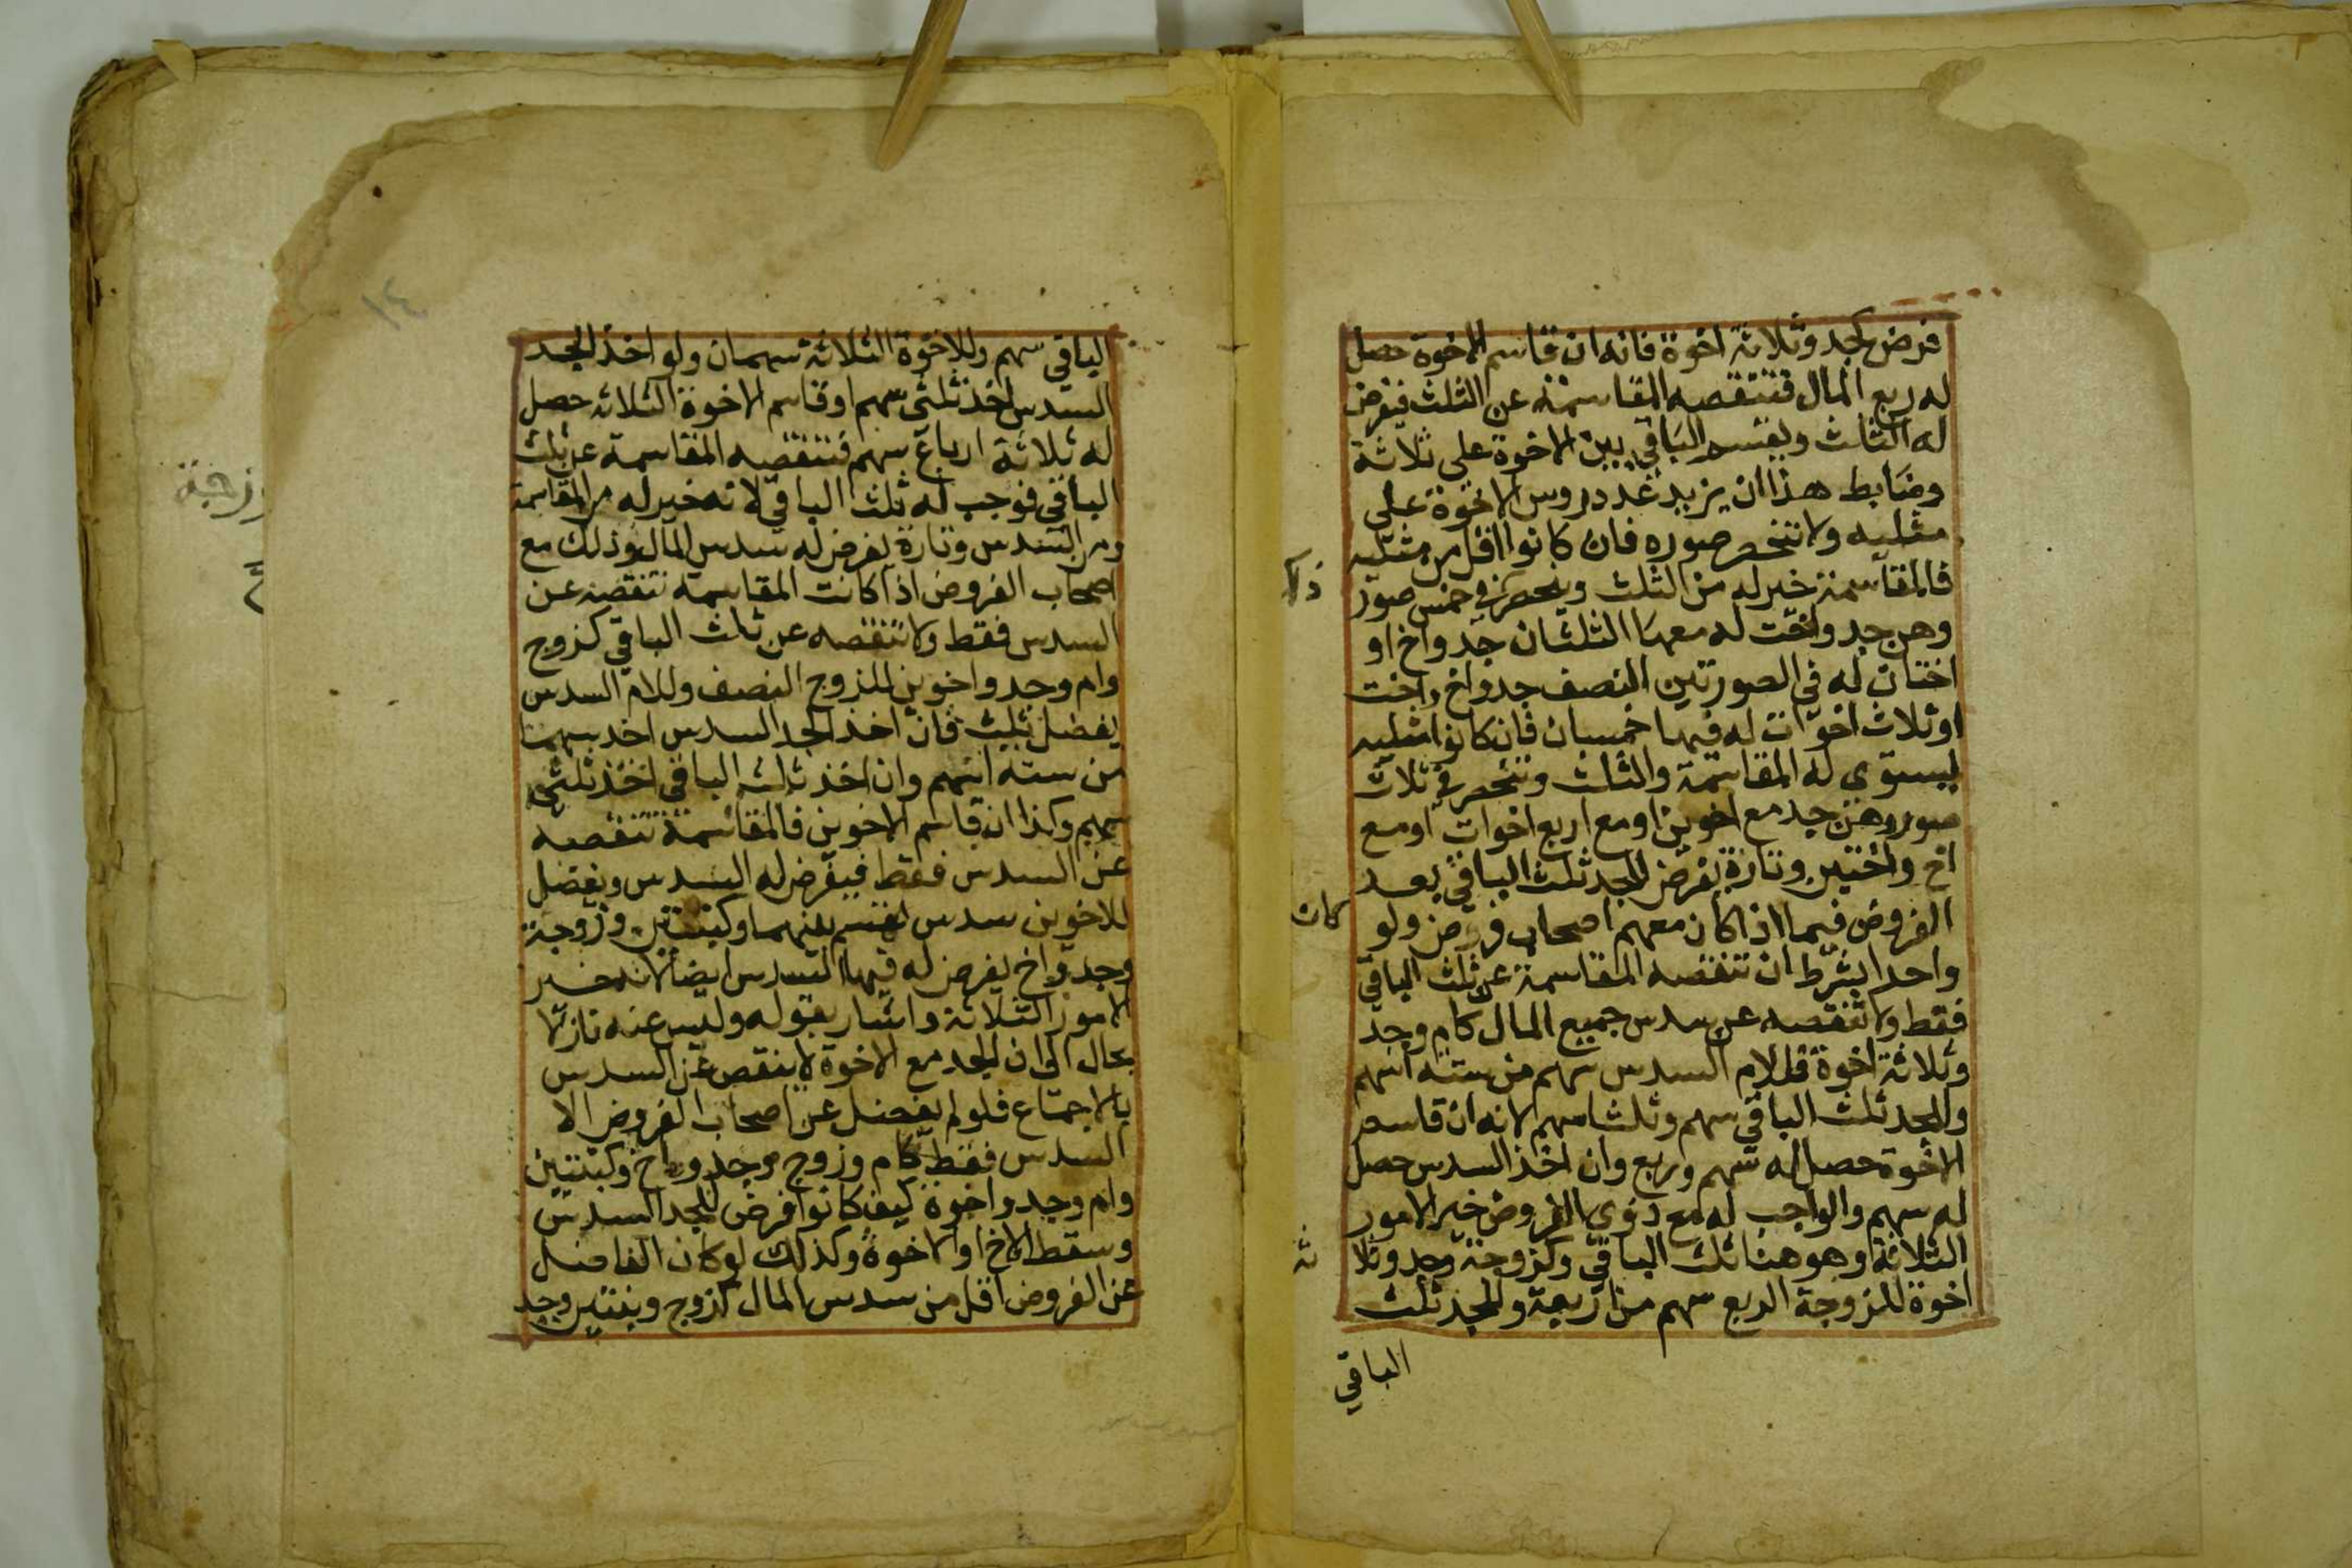 فرض كجد وثلاثة اخوة فانه ان قاسم الاخوة حصل
له ربع المال فتنقصه المقاسمة عن الثلث فيفرض
له الثلث ويقتسم الباقي بين الاخوة على ثلاثة
وضابط هذا ان يزيد عدد روس الاخوة على
مثليه ولا تنحصر صوره فان كانوا اقل من مثليه
فالمقاسمة خير له من الثلث وينحصر في خمس صور
وهن جد واخت له معها الثلثان جد واخ او
اختان له في الصورتين النصف جد واخ واخت
او ثلاث اخوات له فيها خمسان فان كانوا مثليه
ليستوى له المقاسمة والثلث وتنحصر في ثلاث
صور وهن جد مع اخوين او مع اربع اخوات او مع
اخ واختين وتارة يفرض للجد ثلث الباقي بعد
الفروض فيما اذا كان معهم اصحاب فروض ولو
كان
واحدا بشرط ان تنقصه المقاسمة عن ثلث الباقي
فقط ولا تنقصه عن سدس جميع المال كام وجد
وثلاثة اخوة فللام السدس سهم من ستة اسهم
وللجد ثلث الباقي سهم وثلثا سهم لانه ان قاسم
الاخوة حصل له سهم وربع وان اخذ السدس حصل
له سهم والواجب له مع ذوي الفروض خير الامور
الثلاثة وهو هنا ثلث الباقي وكزوجة وجد وثلا
ثة
اخوة للزوجة الربع سهم من اربعة وللجد ثلث
الباقي
١٤
الباقي سهم وللاخوة الثلاثة سهمان ولو اخذ الجد
السدس اخذ ثلثي سهم او قاسم الاخوة الثلاثه حصل
له ثلاثة ارباع سهم فتنقصه المقاسمة عن ثلث
الباقي فوجب له ثلث الباقي لانه خير له من المقاسمة
ومن السدس وتارة يفرض له سدس المال وذلك مع
اصحاب الفروض اذا كانت المقاسمة تنقصه عن
السدس فقط ولا تنقصه عن ثلث الباقي كزوج
وام وجد واخوين للزوج النصف وللام السدس
يفضل ثلث فان اخذ الجد السدس اخذ سهما
من ستة اسهم وان اخذ ثلث الباقي اخذ ثلثي
سهم وكذا ان قاسم الاخوين فالمقاسمة تنقصه
عن السدس فقط فيفرض له السدس ويفضل
للاخوين سدس يقتسم بينهما وكبنتين وزوجة
وجد واخ يفرض له فيها السدس ايضا لانه خير
الامور الثلاثة واشار بقوله وليس عنه نازلا
بحال الى ان الجد مع الاخوة لا ينقص عن السدس
بالاجماع فلو لم يفضل عن اصحاب الفروض الا
السدس فقط كام وزوج وجد واخ وكبنتين
وام وجد واخوة كيف كانوا فرض للجد السدس
وسقط الاخ او الاخوة وكذلك لو كان الفاضل
عن الفروض اقل من سدس المال كزوج وبنتين وجد